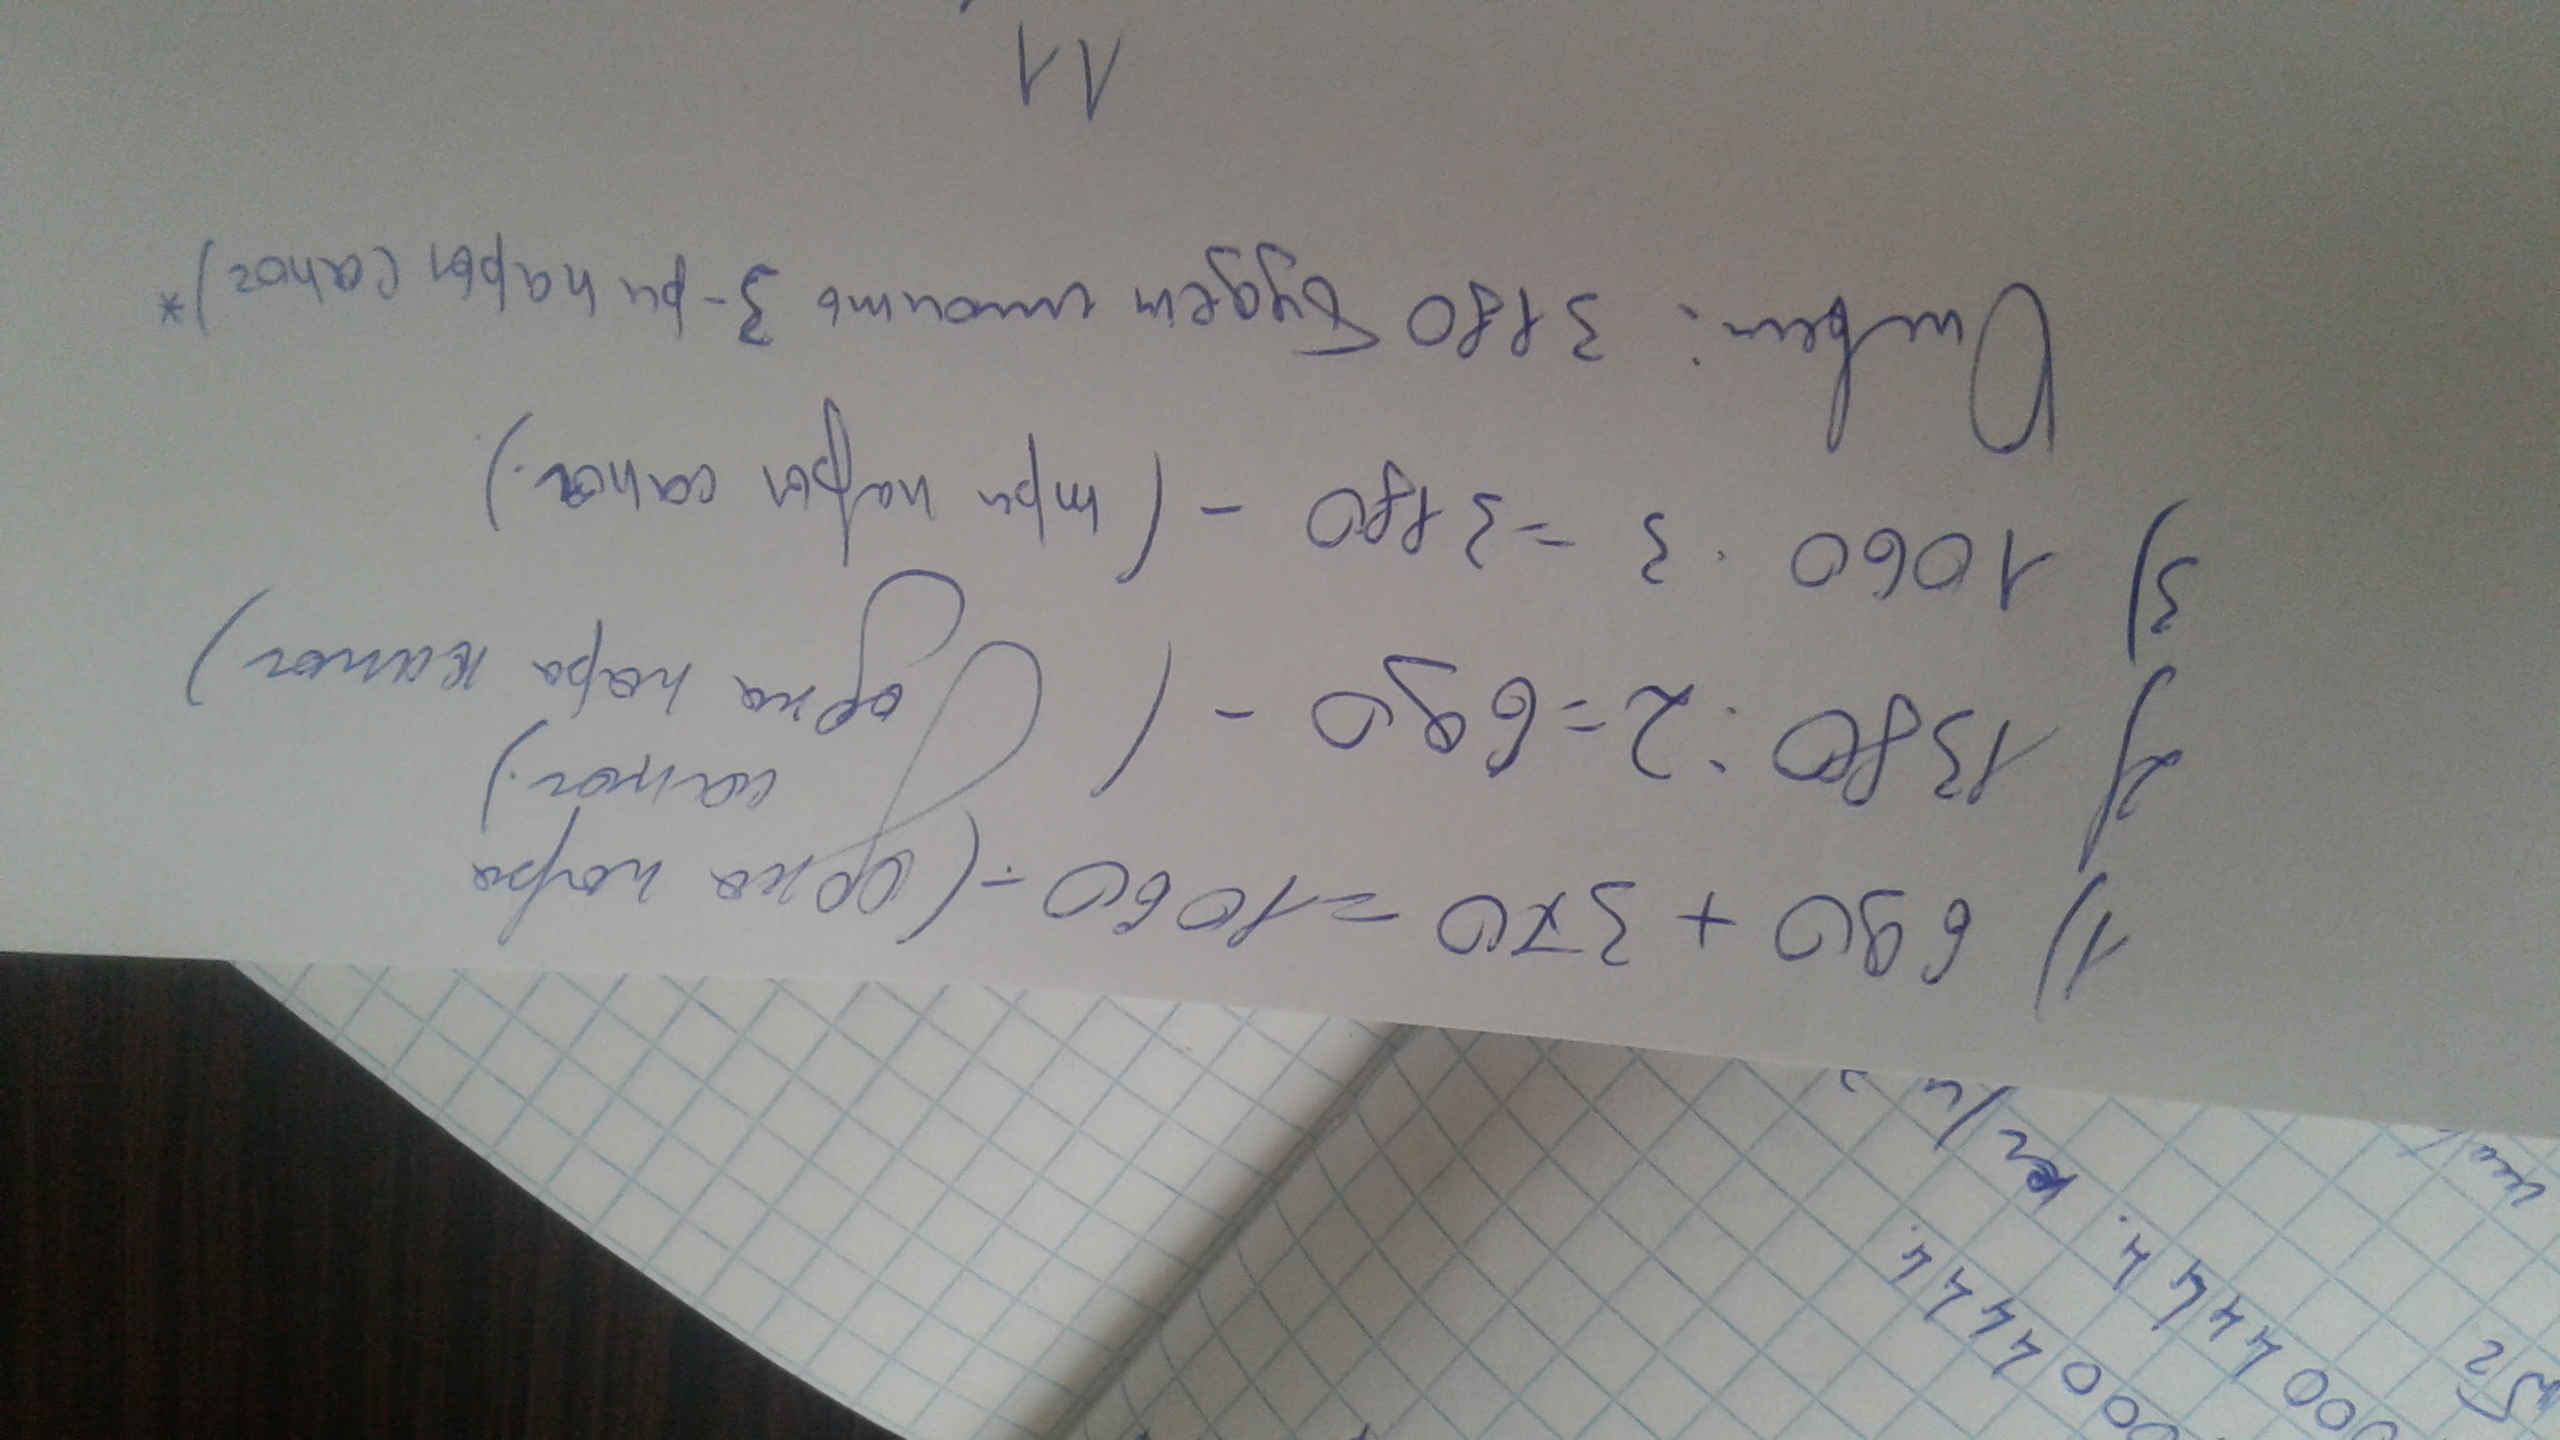 1) 690 + 370 = 1060 - (одна пара
сапог.)
2) 1380 : 2 = 690 - ( одна пара
3) 1060 · 3 = 3180 - (три пары сапог.)
Ответ: 3180 будет стоить 3-ри пары сапог)*
11
000444.
000444.